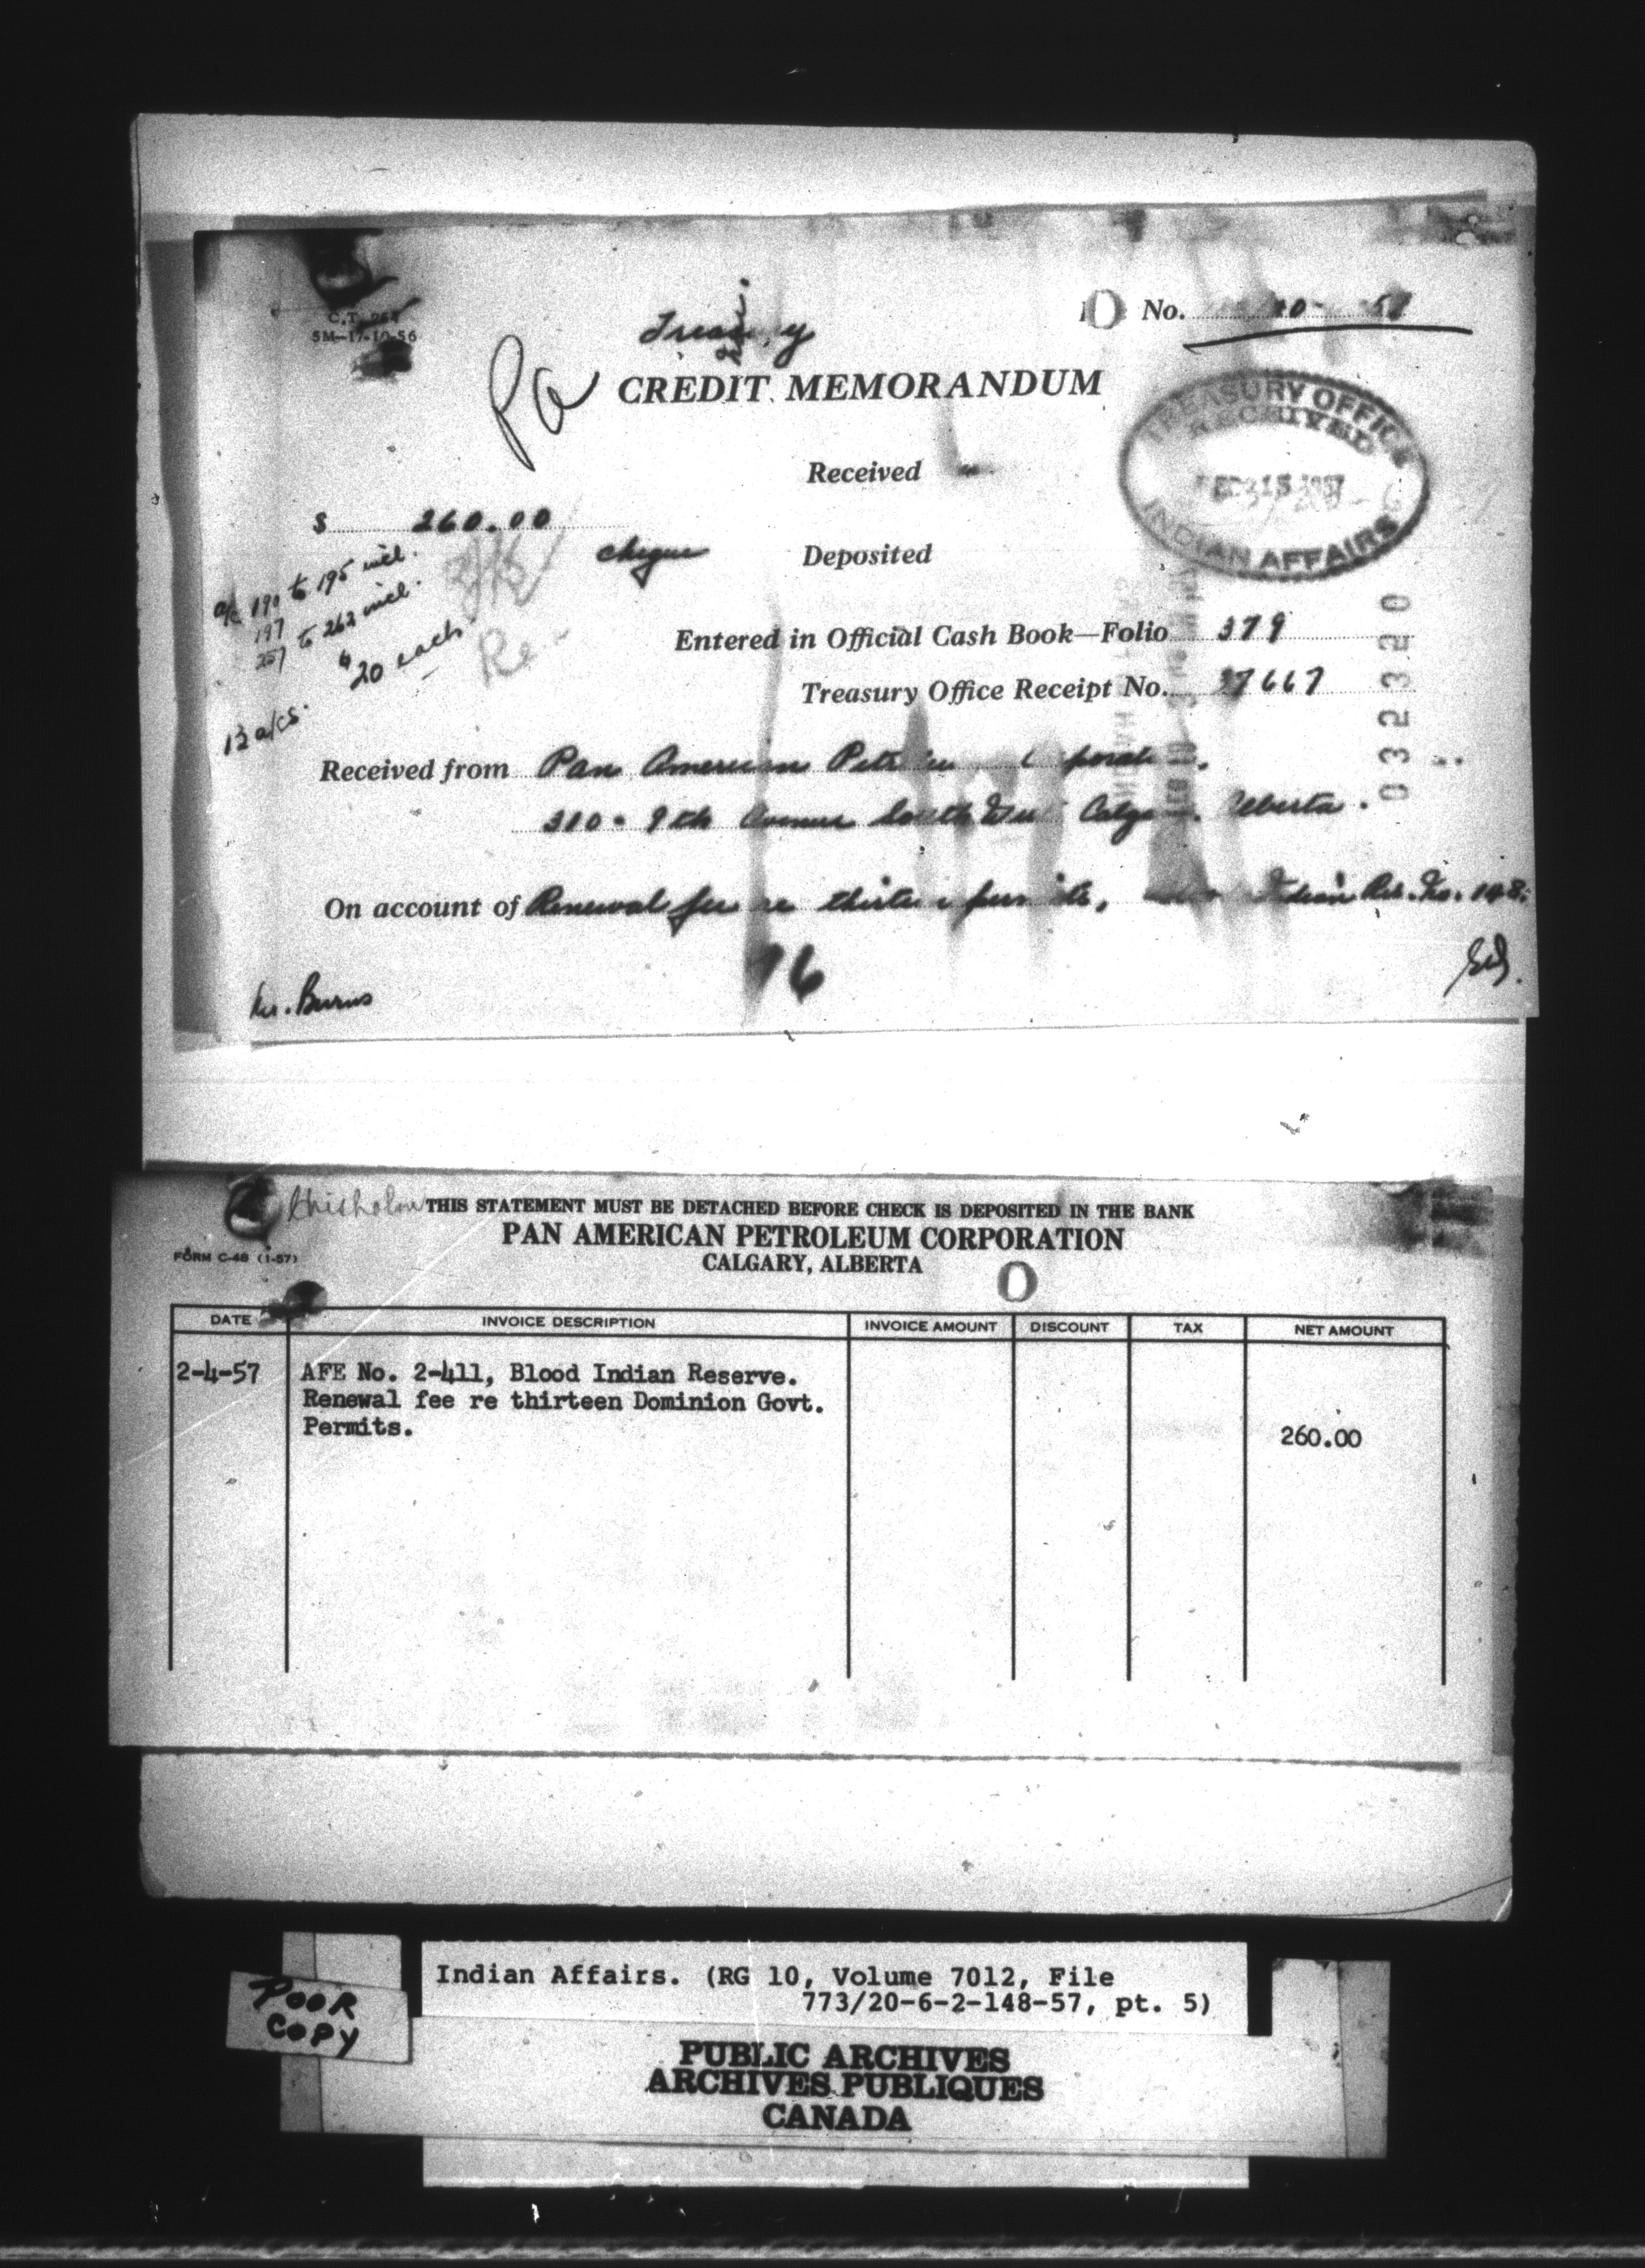 C.T. 264
5M—17-10-56
No.
Treasury
Pa
CREDIT MEMORANDUM
TREASURY OFFICE
RECEIVED
1957
INDIAN AFFAIRS
Received
$ 260.00
cheque
Deposited
a/c 190 to 195 incl.
197
257 to 262 incl.
$20 each
13 a/cs.
Entered in Official Cash Book—Folio 379
Treasury Office Receipt No. 37667
032320
Received from Pan American Petroleum Corporation.
310 - 9th Avenue South West Calgary, Alberta.
On account of Renewal fee re thirteen permits, Indian Res. No. 148.
76
Mr. Burns
Chisholm
THIS STATEMENT MUST BE DETACHED BEFORE CHECK IS DEPOSITED IN THE BANK
PAN AMERICAN PETROLEUM CORPORATION
FORM C-48 (1-57)
CALGARY, ALBERTA
DATE INVOICE DESCRIPTION INVOICE AMOUNT DISCOUNT TAX NET AMOUNT
2-4-57 AFE No. 2-411, Blood Indian Reserve.
Renewal fee re thirteen Dominion Govt.
Permits. 260.00
POOR
COPY
Indian Affairs. (RG 10, Volume 7012, File
773/20-6-2-148-57, pt. 5)
PUBLIC ARCHIVES
ARCHIVES PUBLIQUES
CANADA